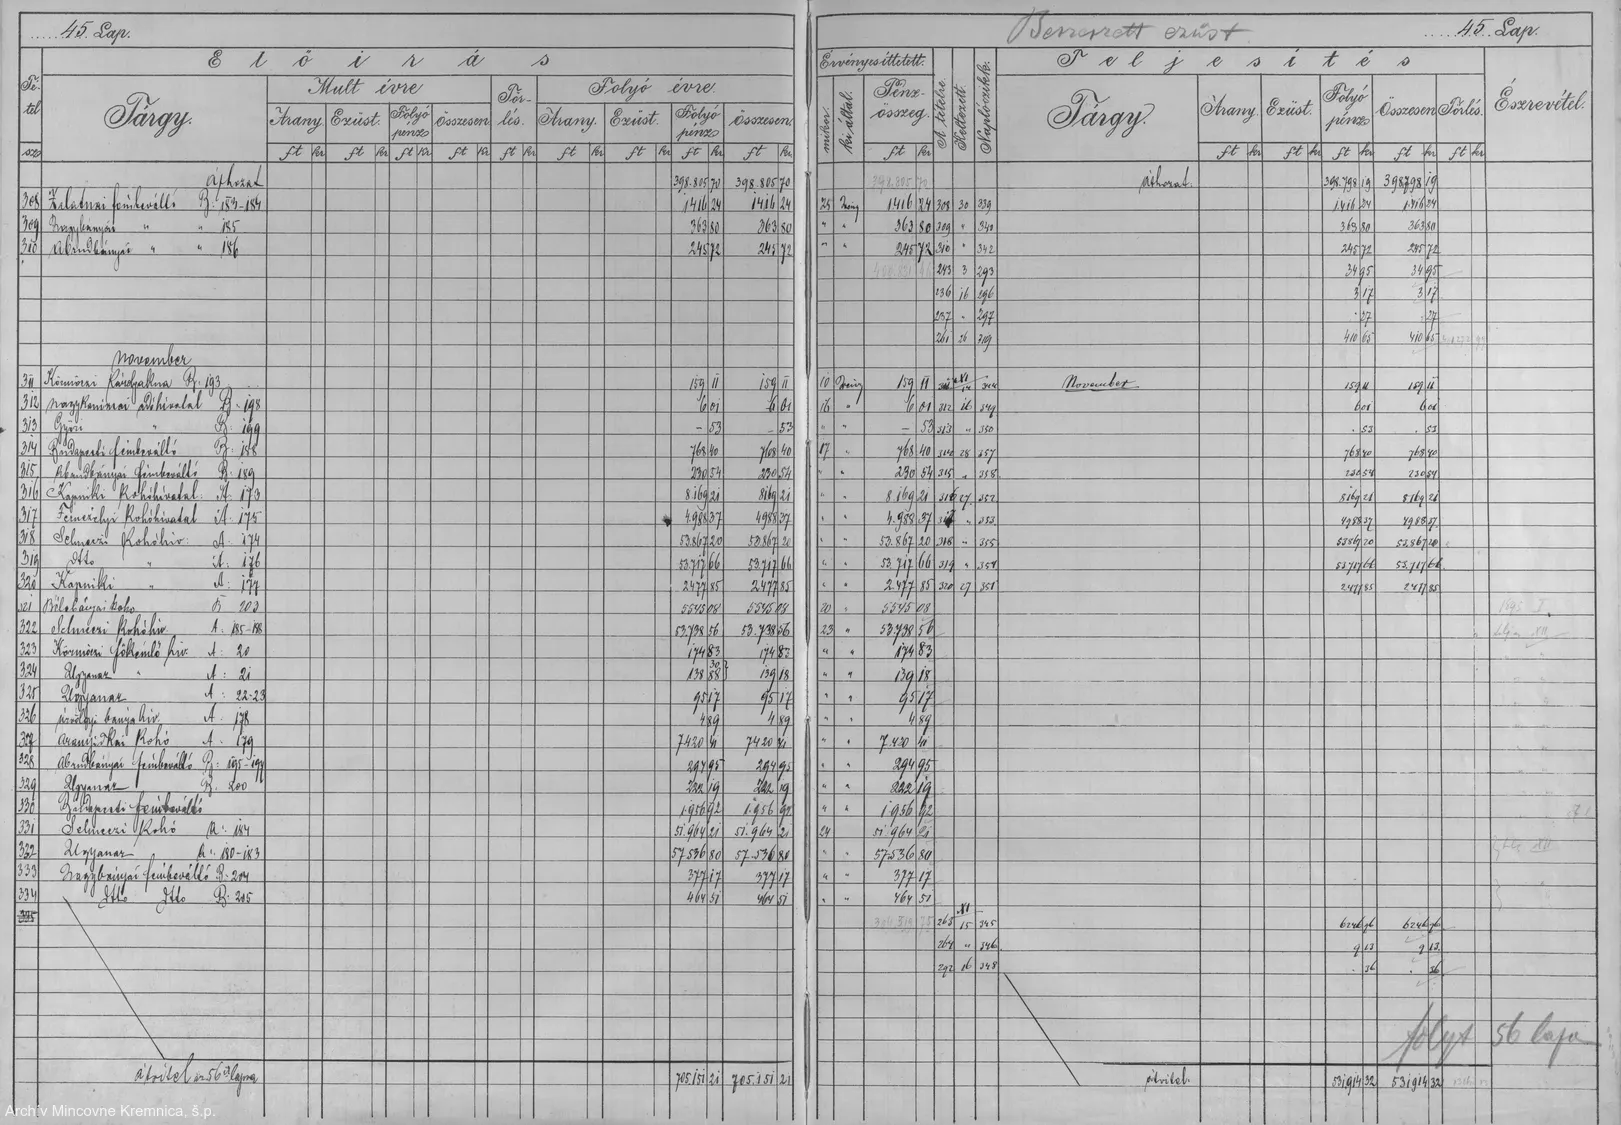 45. Lap.
Előirás
Tétel szo
Tárgy.
Mult évre
Arany. Ezüst. Folyó pénz Összesen
Törlés.
Folyó évre
Arany. Ezüst. Folyó pénz Összesen
ft kr ft kr ft kr ft kr ft kr ft kr ft kr ft kr ft kr
Áthozat 398.805 70 398.805 70
308 Zalatnai fémbeváltó B: 183-184 1416 24 1416 24
309 Nagybányai " " 185 363 80 363 80
310 Abrudbányai " " 186 245 72 245 72
November
311 Körmöczi Károlyakna B: 193 159 11 159 11
312 Nagykanizsai adóhivatal B: 198 6 01 6 01
313 Győri " B: 199 – 53 – 53
314 Budapesti fémbeváltó B: 188 768 40 768 40
315 Abrudbányai fémbeváltó B: 189 230 54 230 54
316 Kapniki Kohóhivatal A: 173 8169 21 8169 21
317 Fernezelyi Kohóhivatal A: 175 4.988 37 4988 37
318 Selmeczi Kohóhiv. A: 174 53.867 20 53.867 20
319 dtto " A: 176 53.717 66 53.717 66
320 Kapniki " A: 177 2477 85 2477 85
321 Bélabányai Koho B 203 5545 08 5545 08
322 Selmeczi Kohóhiv A: 185-188 53.738 56 53.738 56
323 Körmöczi főkémlő hiv A: 20 174 83 174 83
324 Ugyanaz " A: 21 138 88 30 139 18
325 Ugyanaz A: 22-23 95 17 95 17
326 Úrvölgyi bánya hiv. A: 178 4 89 4 89
327 Aranyidkai Kohó A: 179 7420 41 7420 41
328 Abrudbányai fémbeváltó B: 195-197 294 95 294 95
329 Ugyanaz B: 200 222 19 222 19
330 Budapesti fémbeváltó 1.956 92 1.956 92
331 Selmeczi Kohó A: 184 51.964 21 51.964 21
332 Ugyanaz A: 180-183 57.536 80 57.536 80
333 Nagybányai fémbeváltó B: 204 377 17 377 17
334 dtto dtto B: 205 464 51 464 51
335
átvitel az 56ik lapra 705.151 21 705.151 21
Beszerzett ezüst
45. Lap.
Érvényesíttetett.
mikor. ki által. Pénzösszeg.
A tételre. Keltezett. Naplóczikk.
Teljesítés
Tárgy.
Arany. Ezüst. Folyó pénz Összesen Törlés.
Észrevétel.
ft kr ft kr ft kr ft kr ft kr ft kr
398.805 70 Áthozat. 398.798 19 398798 19
25 1416 24 308 30 339 1416 24 1416 24
" " 363 80 309 " 340 363 80 363 80
" " 245 72 310 " 342 245 72 245 72
243 3 293 34 95 34 95
236 16 296 3 17 3 17
237 " 297 . 27 . 27
261 26 319 410 65 410 65
10 159 11 311 XI 14 344 November 159 11 159 11
16 " 6 01 312 16 349 6 01 6 01
" " – 53 313 " 350 . 53 . 53
17 " 768 40 314 28 357 768 40 768 40
" " 230 54 315 " 358 230 54 230 54
" " 8.169 21 316 27 352 8169 21 8169 21
" " 4.988 37 317 " 353 4988 37 4988 37
" " 53.867 20 318 " 355 53867 20 53.867 20
" " 53.717 66 319 " 354 53.717 66 53.717 66
" " 2.477 85 320 27 351 2477 85 2477 85
20 " 5545 08
23 " 53.738 56
" " 174 83
" " 139 18
" " 95 17
" " 4 89
" " 7.420 41
" " 294 95
" " 222 19
" " 1.956 92
24 " 51.964 21
" " 57.536 80
" " 377 17
" " 464 51
265 XI 15 345 6246 96 6246 96
264 " 346 9 13 9 13
292 16 348 . 36 . 36
folyt 56 lapon
átvitel. 531914 32 531914 32
Archív Mincovne Kremnica, š.p.